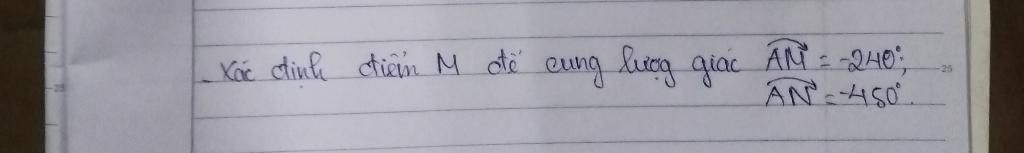 - Xác định điểm M để cung lượng giác AM = -240°;
AN = -450°.
25
25